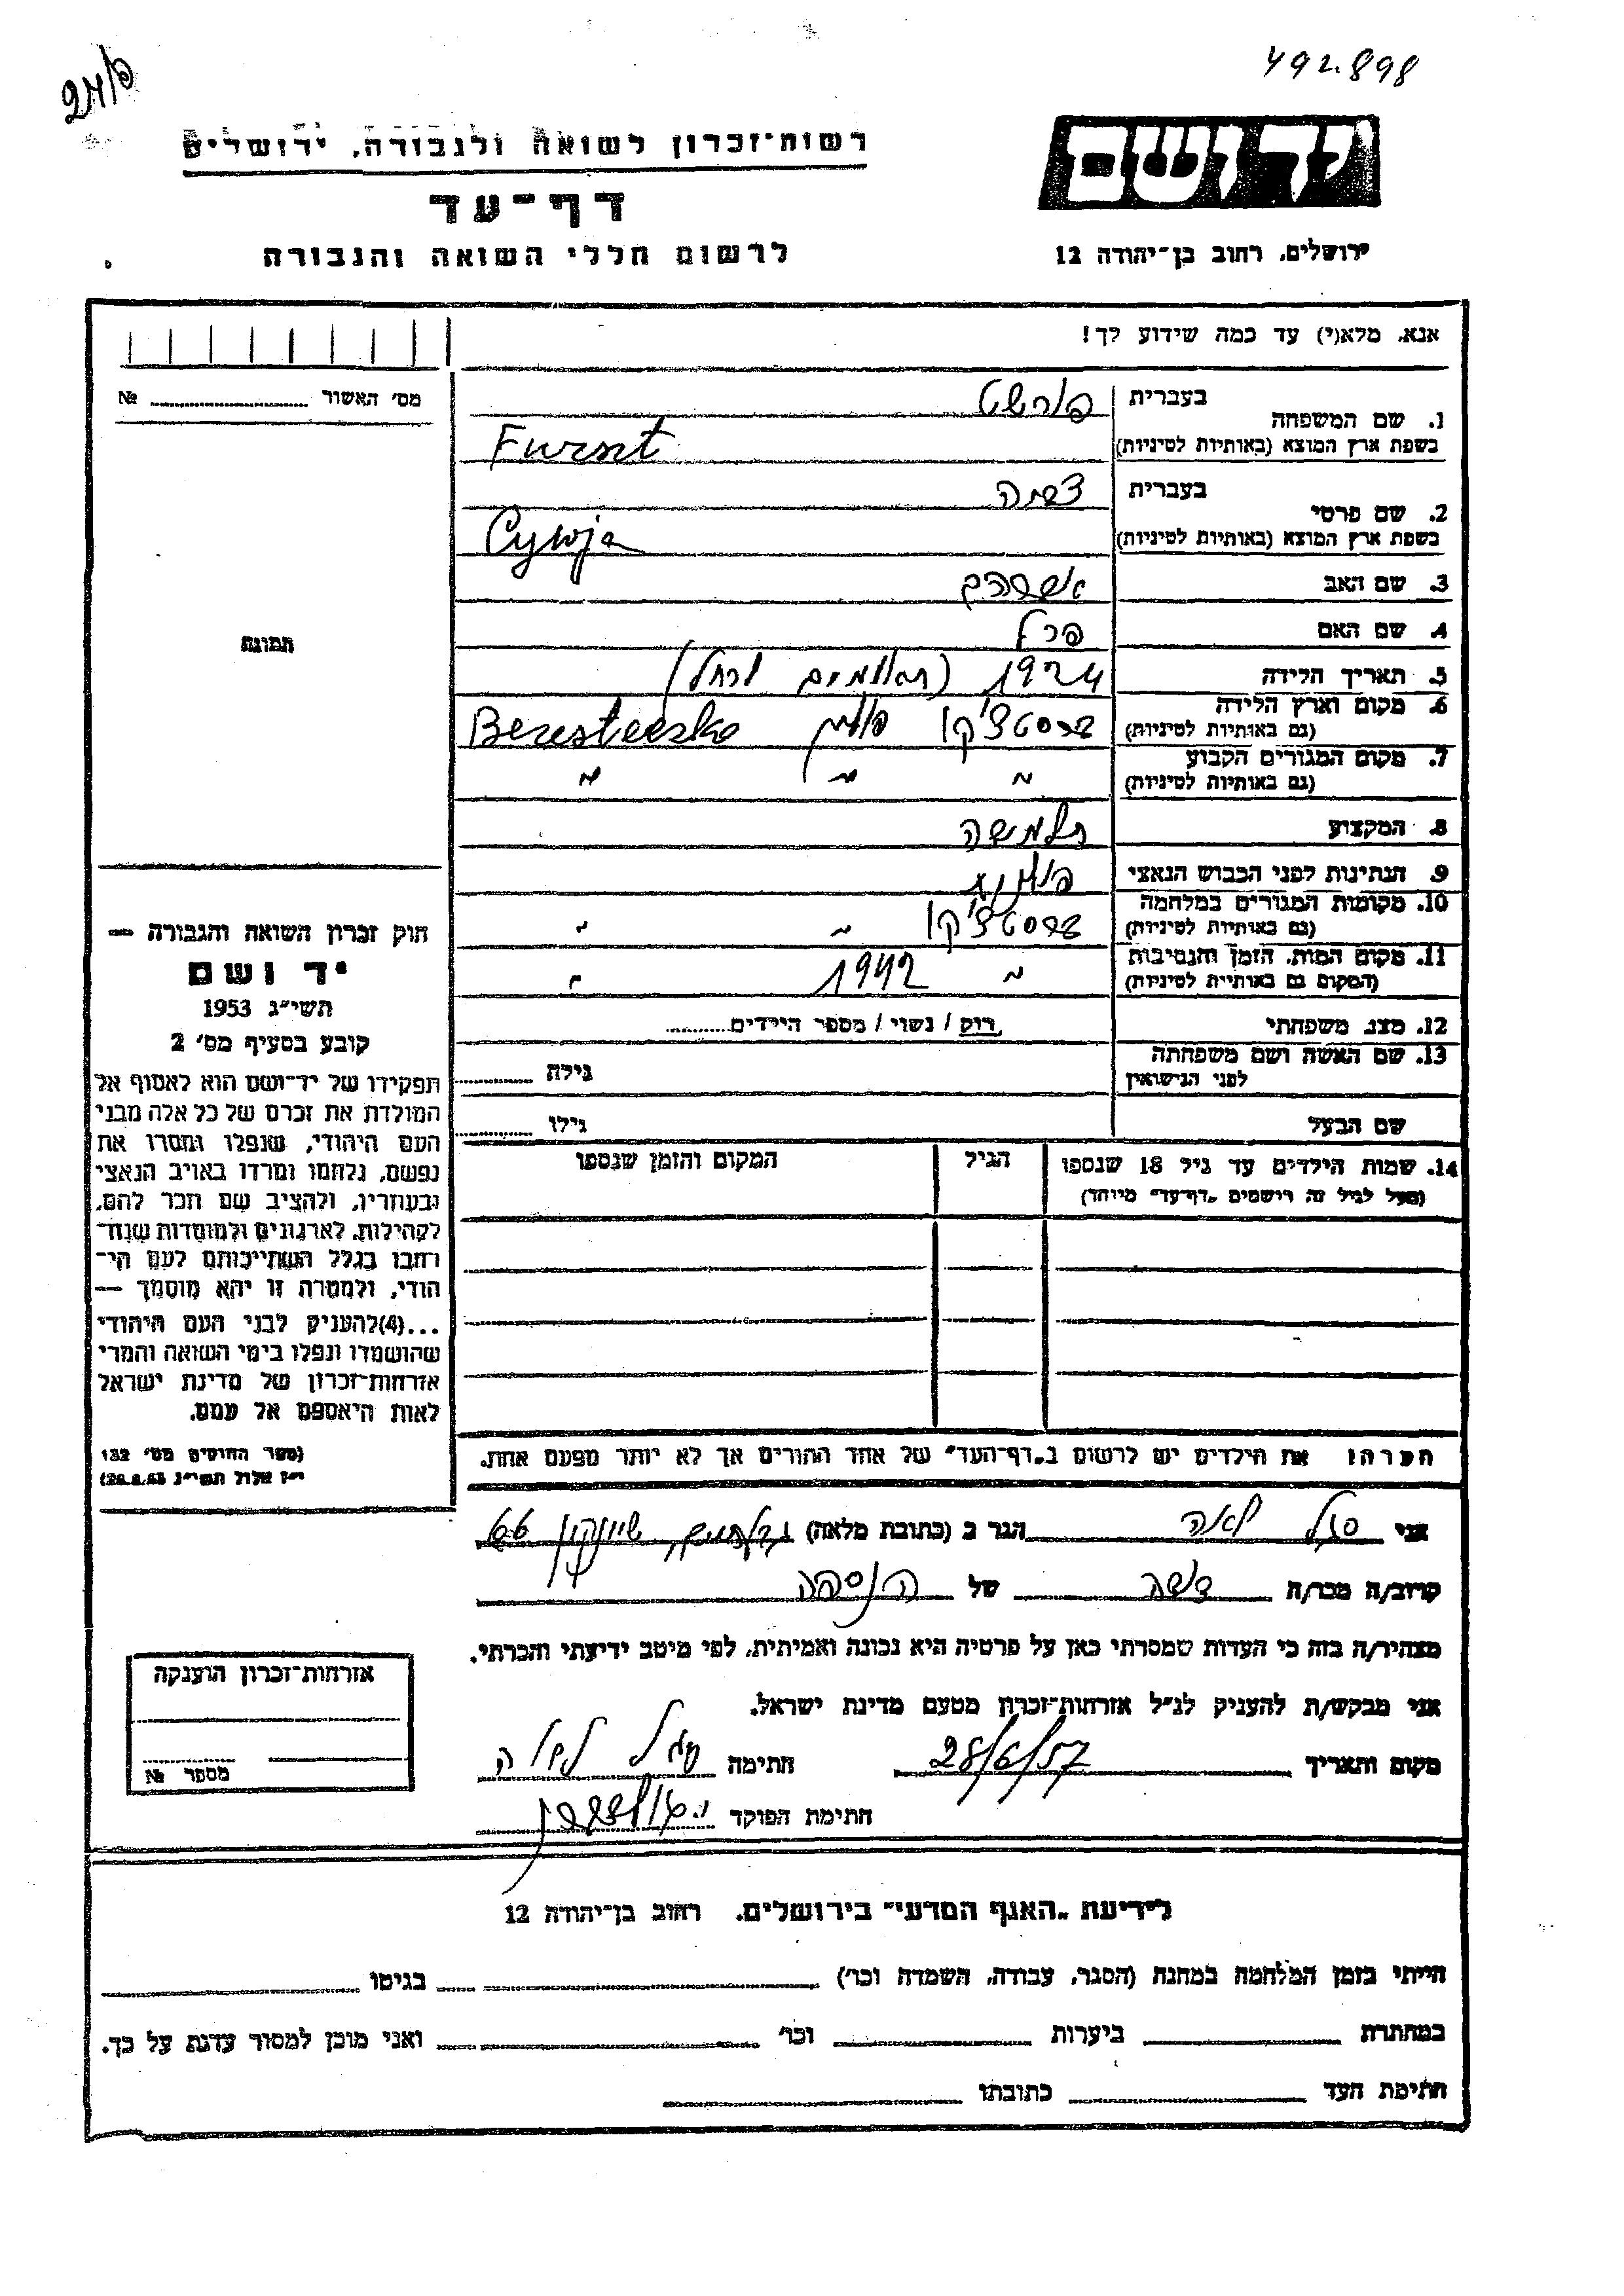 492.898
יד ושם
רשות־זכרון לשואה ולגבורה, ירושלים
דף־עד
לרשום חללי השואה והגבורה
ירושלים, רחוב בן־יהודה 12
אנא, מלא(י) עד כמה שידוע לך!
מס׳ האשור № 
1. שם המשפחה בעברית פורשט
בשפת ארץ המוצא (באותיות לטיניות) Furszt
2. שם פרטי בעברית צביה
בשפת ארץ המוצא (באותיות לטיניות) Cywja
3. שם האב אברהם
4. שם האם פרל
5. תאריך הלידה 1924
6. מקום וארץ הלידה
(גם באותיות לטיניות) ברסטצ'קו פולין Beresteczko
7. מקום המגורים הקבוע
(גם באותיות לטיניות) " " "
8. המקצוע תלמידה
9. הנתינות לפני הכבוש הנאצי פולנית
10. מקומות המגורים במלחמה
(גם באותיות לטיניות) ברסטצ'קו " "
11. מקום המות, הזמן והנסיבות
(המקום גם באותיות לטיניות) " 1942 "
12. מצב משפחתי רוק / נשוי / מספר הילדים
13. שם האשה ושם משפחתה
לפני הנישואין גילה
שם הבעל גילו
14. שמות הילדים עד גיל 18 שנספו
(מעל לגיל זה רושמים „דף־עד" מיוחד)
הגיל
המקום והזמן שנספו
הערה: את הילדים יש לרשום ב„דף־העד" של אחד ההורים אך לא יותר מפעם אחת.
תמונה
חוק זכרון השואה והגבורה —
יד ושם
תשי״ג 1953
קובע בסעיף מס׳ 2
תפקידו של יד־ושם הוא לאסוף אל
המולדת את זכרם של כל אלה מבני
העם היהודי, שנפלו ומסרו את
נפשם, נלחמו ומרדו באויב הנאצי
ובעוזריו, ולהציב שם וזכר להם,
לקהילות, לארגונים ולמוסדות שנח־
רבו בגלל השתייכותם לעם הי־
הודי, ולמטרה זו יהא מוסמך —
...(4)להעניק לבני העם היהודי
שהושמדו ונפלו בימי השואה והמרי
אזרחות־זכרון של מדינת ישראל
לאות היאספם אל עמם.
(ספר החוקים מס׳ 132
י״ז אלול תשי״ג 28.8.53)
אני לאה הגר ב (כתובת מלאה) 66
קרוב/ה מכר/ה של הנספה
מצהיר/ה בזה כי העדות שמסרתי כאן על פרטיה היא נכונה ואמיתית, לפי מיטב ידיעתי והכרתי.
אני מבקש/ת להעניק לנ״ל אזרחות־זכרון מטעם מדינת ישראל.
מקום ותאריך 28/6/57 חתימה
חתימת הפוקד
אזרחות־זכרון הוענקה
מספר №
לידיעת „האגף המדעי" בירושלים, רחוב בן־יהודה 12
הייתי בזמן המלחמה במחנה (הסגר, עבודה, השמדה וכו׳) בגיטו
במחתרת ביערות וכו׳ ואני מוכן למסור עדות על כך.
חתימת העד כתובתו